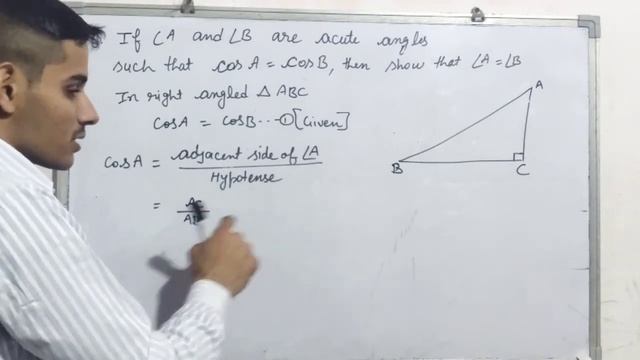 If ∠A and ∠B are acute angles
such that cosA = cosB, then show that ∠A = ∠B
In right angled △ ABC
cosA = cosB --- ① [Given]
cosA = adjacent side of ∠A
Hypotense
=
A
B
C